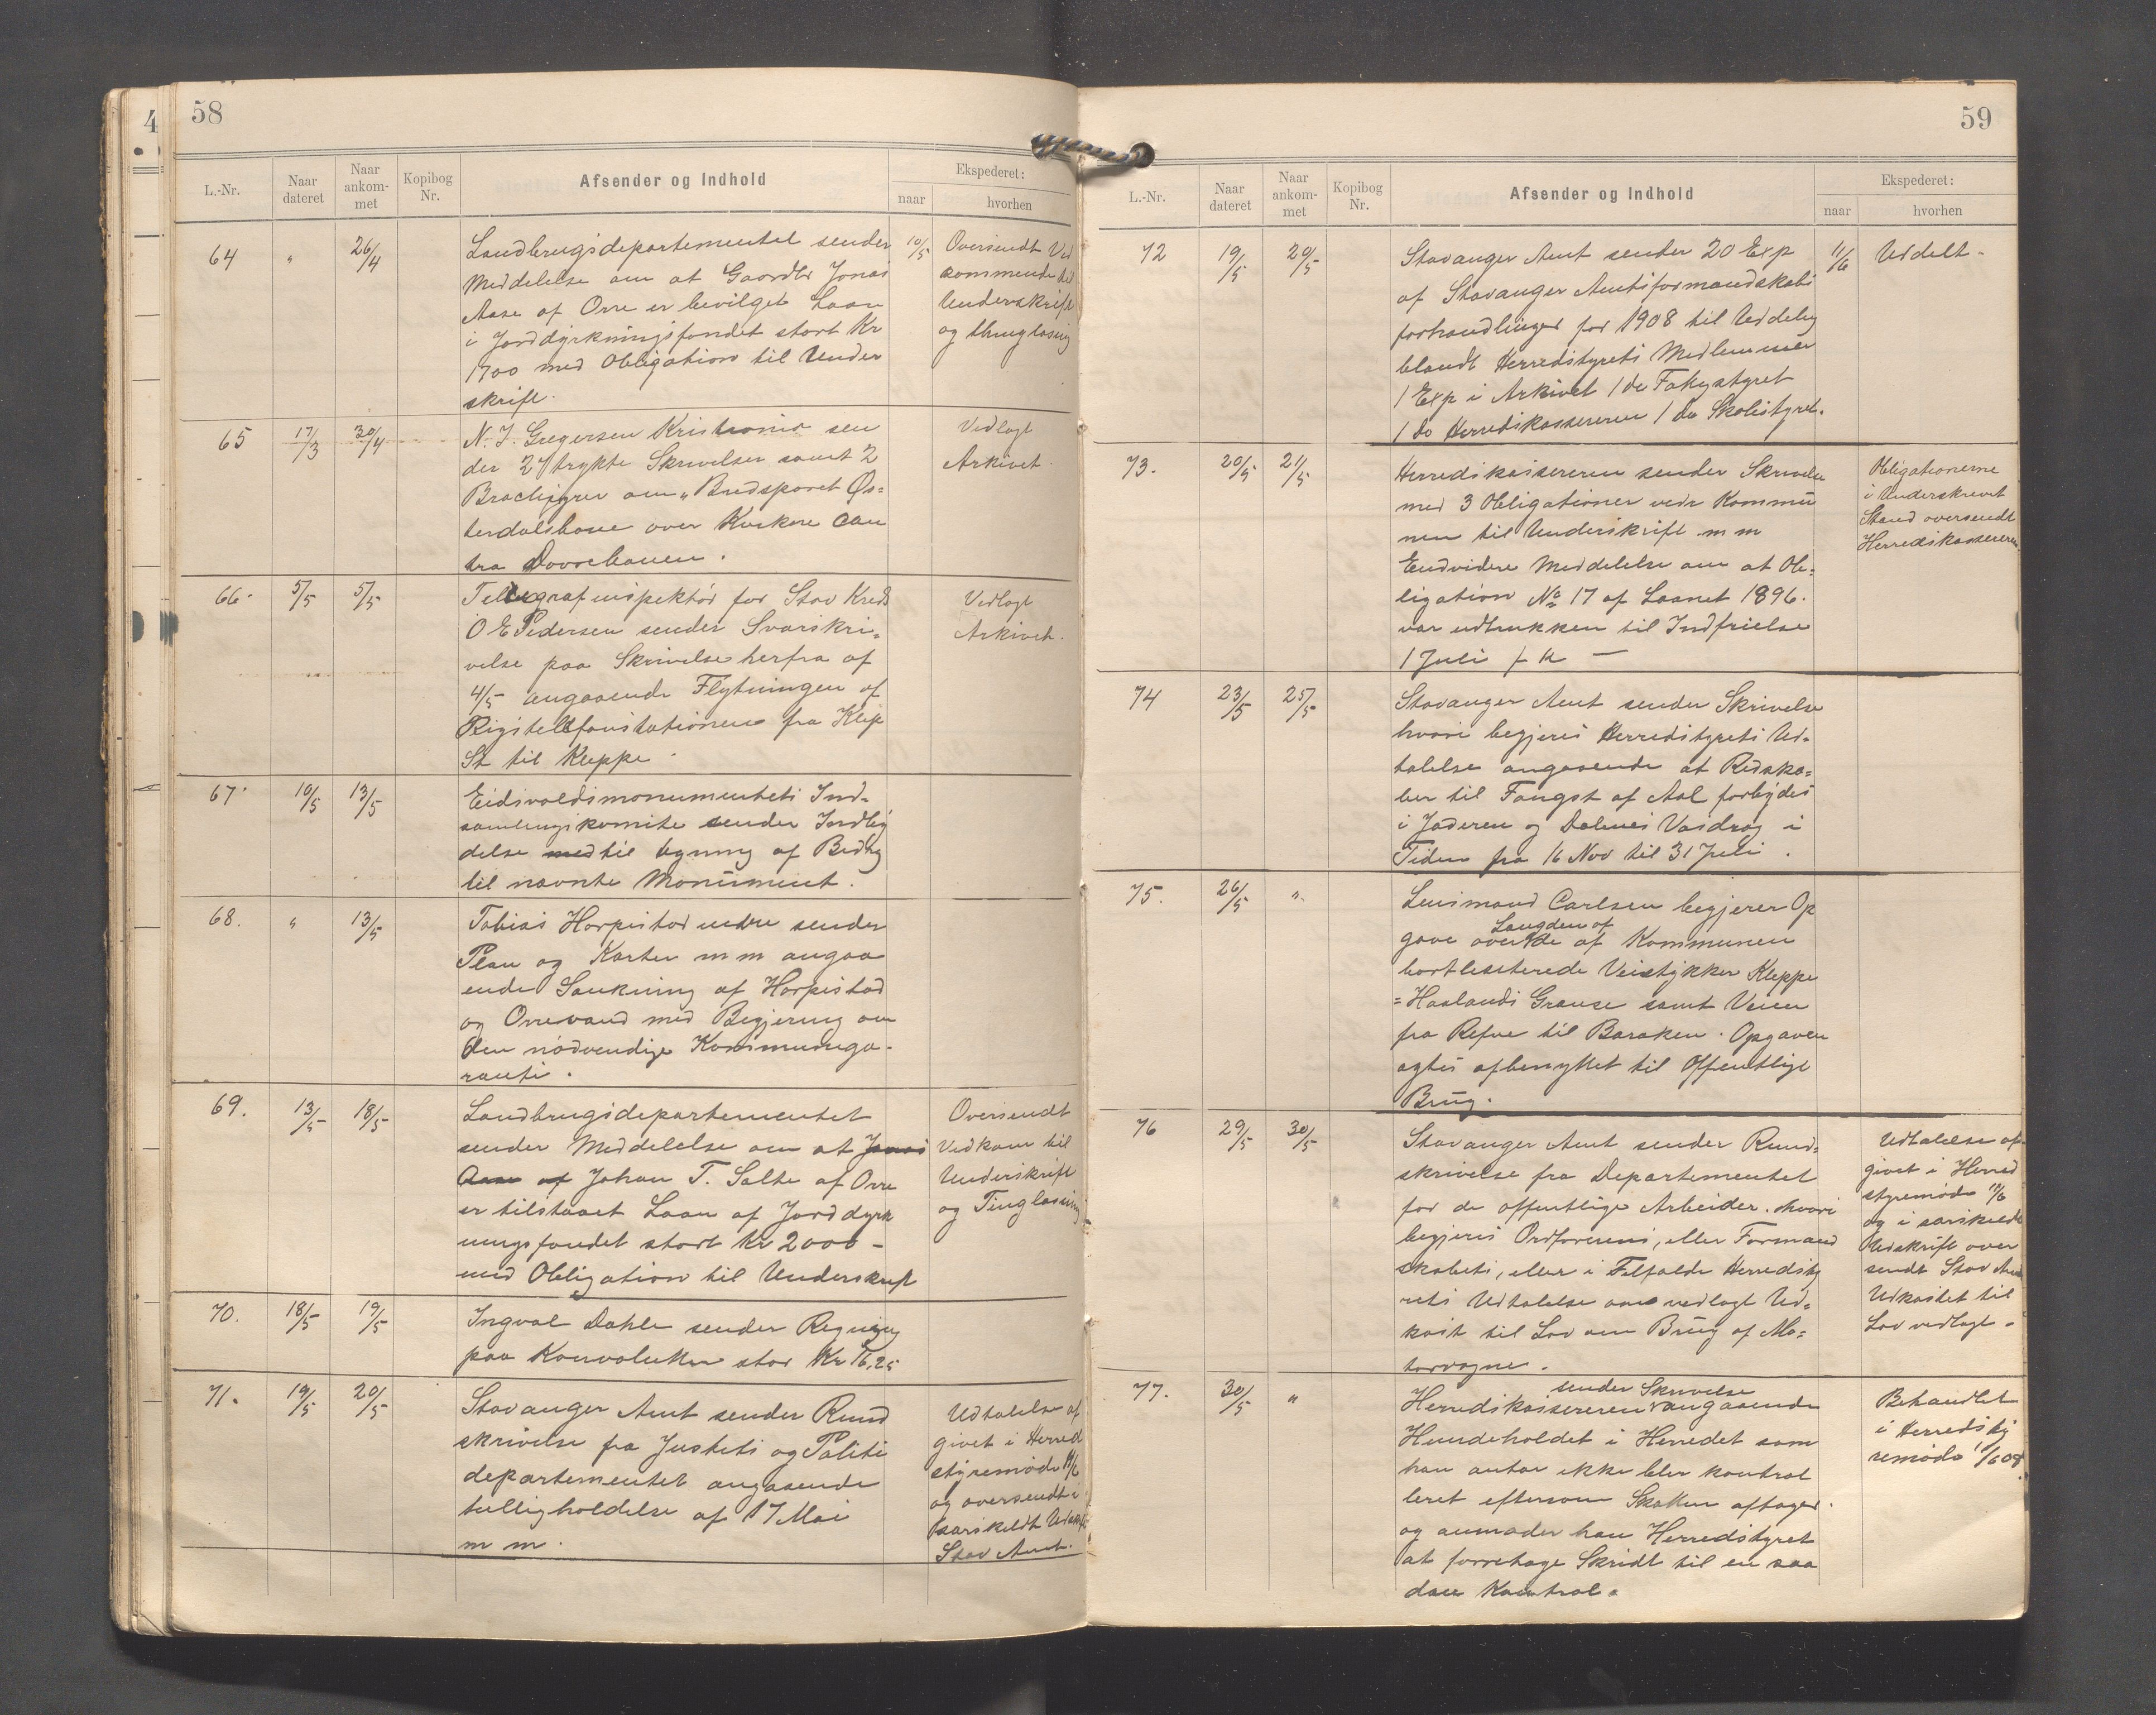 58
L.-Nr.
Naar dateret
Naar ankom- met
Kopibog Nr.
Afsender og Indhold
Ekspederet:
naar
hvorhen
64 " 26/4
Landbrugsdepartementet sender
Meddelelse om at Gaardbr Jonas
Aase af Orre er bevilget Laan
i Jorddyrkningsfondet stort Kr
1700 med Obligation til Under
skrift.
10/5
Oversendt Ved
kommende til
Underskrift
og thinglæsing
65 17/3 30/4
N. J. Gregersen Kristiania sen
der 2 trykte Skrivelser samt 2
Brochyrer om "Bredsporet Øs=
terdalsbane over Kvikne con
tra Dovrebanen.
Vedlagt
Arkivet.
66. 5/5 5/5
Telegrafinspektør for Stav Kreds
O E Pedersen sender Svarskri=
velse paa Skrivelse herfra af
4/5 angaaende Flytningen af
Rigstelefonstationen fra Klep
St til Kleppe.
Vedlagt
Arkivet.
67. 10/5 13/5
Eidsvoldsmonumentets Ind=
samlingskomite sender Indby
delse med til tegning af Bidrag
til nævnte Monument.
68. " 13/5
Tobias Horpestad nedre sender
Plan og Karter m m angaa
ende Sænkning af Horpestad
og Orrevand med Begjering om
den nødvendige Kommunega=
ranti.
69. 13/5 18/5
Landbrugsdepartementet
sender Meddelelse om at Jonas
Aase af Johan T. Salte af Orre
er tilstaaet Laan af Jorddyrk
ningsfondet stort Kr 2000 -
med Obligation til Underskrift
Oversendt
Vedkom til
Underskrift
og Tinglæsning
70. 18/5 19/5
Ingval Dahle sender Regning
paa Konvolutter stor Kr 16,25
71. 19/5 20/5
Stavanger Amt sender Rund
skrivelse fra Justits og Politi
departementet angaaende
helligholdelse af 17 Mai
m m.
Udtalelse af
givet i Herred
styremøde 11/6
og oversendt i
særskildt Udskrift
Stav Amt.
59
L.-Nr.
Naar dateret
Naar ankom- met
Kopibog Nr.
Afsender og Indhold
Ekspederet:
naar
hvorhen
72 19/5 20/5
Stavanger Amt sender 20 Exp
af Stavanger Amtsformandskabs
forhandlinger for 1908 til Uddeling
blandt Herredstyrets Medlemmer
1 Exp i Arkivet 1 do Fatigstyret
1 do Herredskassereren 1 do Skolestyret.
11/6
Uddelt -
73. 20/5 21/5
Herredskassereren sender Skrivelse
med 3 Obligationer vedr Kommu
nen til Underskrift m m
Endvidere Meddelelse om at Ob=
ligation No 17 af Laanet 1896.
var udtrukken til Indfrielse
1 Juli f k —
Obligationerne
i Underskrevet
Stand oversendt
Herredskassereren
74 23/5 25/5
Stavanger Amt sender Skrivelse
hvori begjeres Herredstyrets Ud=
talelse angaaende at Redska=
ber til Fangst af Aal forbydes
i Jæderen og Dalenes Vasdrag i
Tiden fra 16 Nov til 31 Juli.
75. 26/5 "
Lensmand Carlsen begjerer Op
Længden af
gave over de af Kommunen
bortliciterede Veistykker Kleppe
=Haalands Grænse samt Veien
fra Refve til Baraken. Opgaven
agtes afbenyttet til Offentligt
Brug.
76 29/5 30/5
Stavanger Amt sender Rund=
skrivelse fra Departementet
for de offentlige Arbeider. hvori
begjeres Ordførerens, eller Formand
skabets, eller i Tilfælde Herredsty
rets Udtalelse om vedlagt Ud=
kast til Lov om Brug af Mo=
torvogne.
Udtalelse af=
givet i Herred
styremøde 11/6
og i særskildt
Udskrift over
sendt Stav Amt
Udkastet til
Lov vedlagt -
77. 30/5 "
sender Skrivelse
Herredskassereren angaaende
Hundeholdet i Herredet som
han antar ikke bler kontrol
leret eftersom Skatten aftager.
og anmoder han Herredstyret
at forretage Skridt til en saa
dan Kontrol.
Behandlet
i Herredsty
remøde 11/6 08